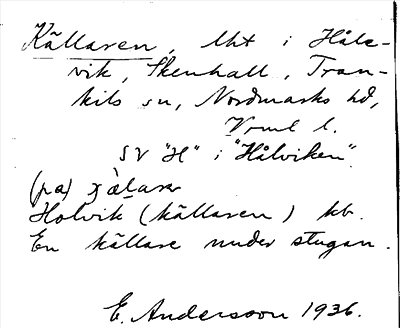 Källaren, lht i Håle-
vik, Skenhall, Tran-
kils sn, Nordmarks hd,
Vrml l.
SV "H" i "Hålviken".
(pa)
Holvik (källaren) kb.
En källare under stugan.
E. Andersson 1936.